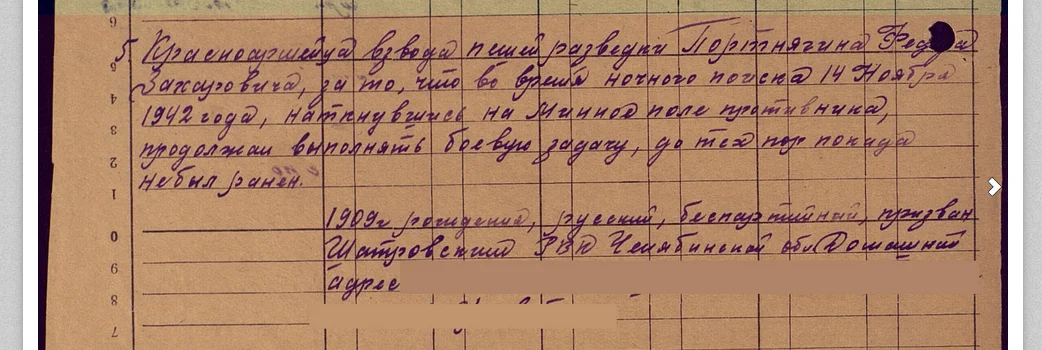 5. Красноармейца взвода пешей разведки Портнягина Федора
Захаровича, за то, что во время ночного поиска 14 Ноября
1942 года, наткнувшись на Минное поле противника,
продолжал выполнять боевую задачу, до тех пор покада
небыл ранен.
1909г рождения, русский, беспартийный, призван
Шатровский РВК Челябинской обл Домашний
адрес